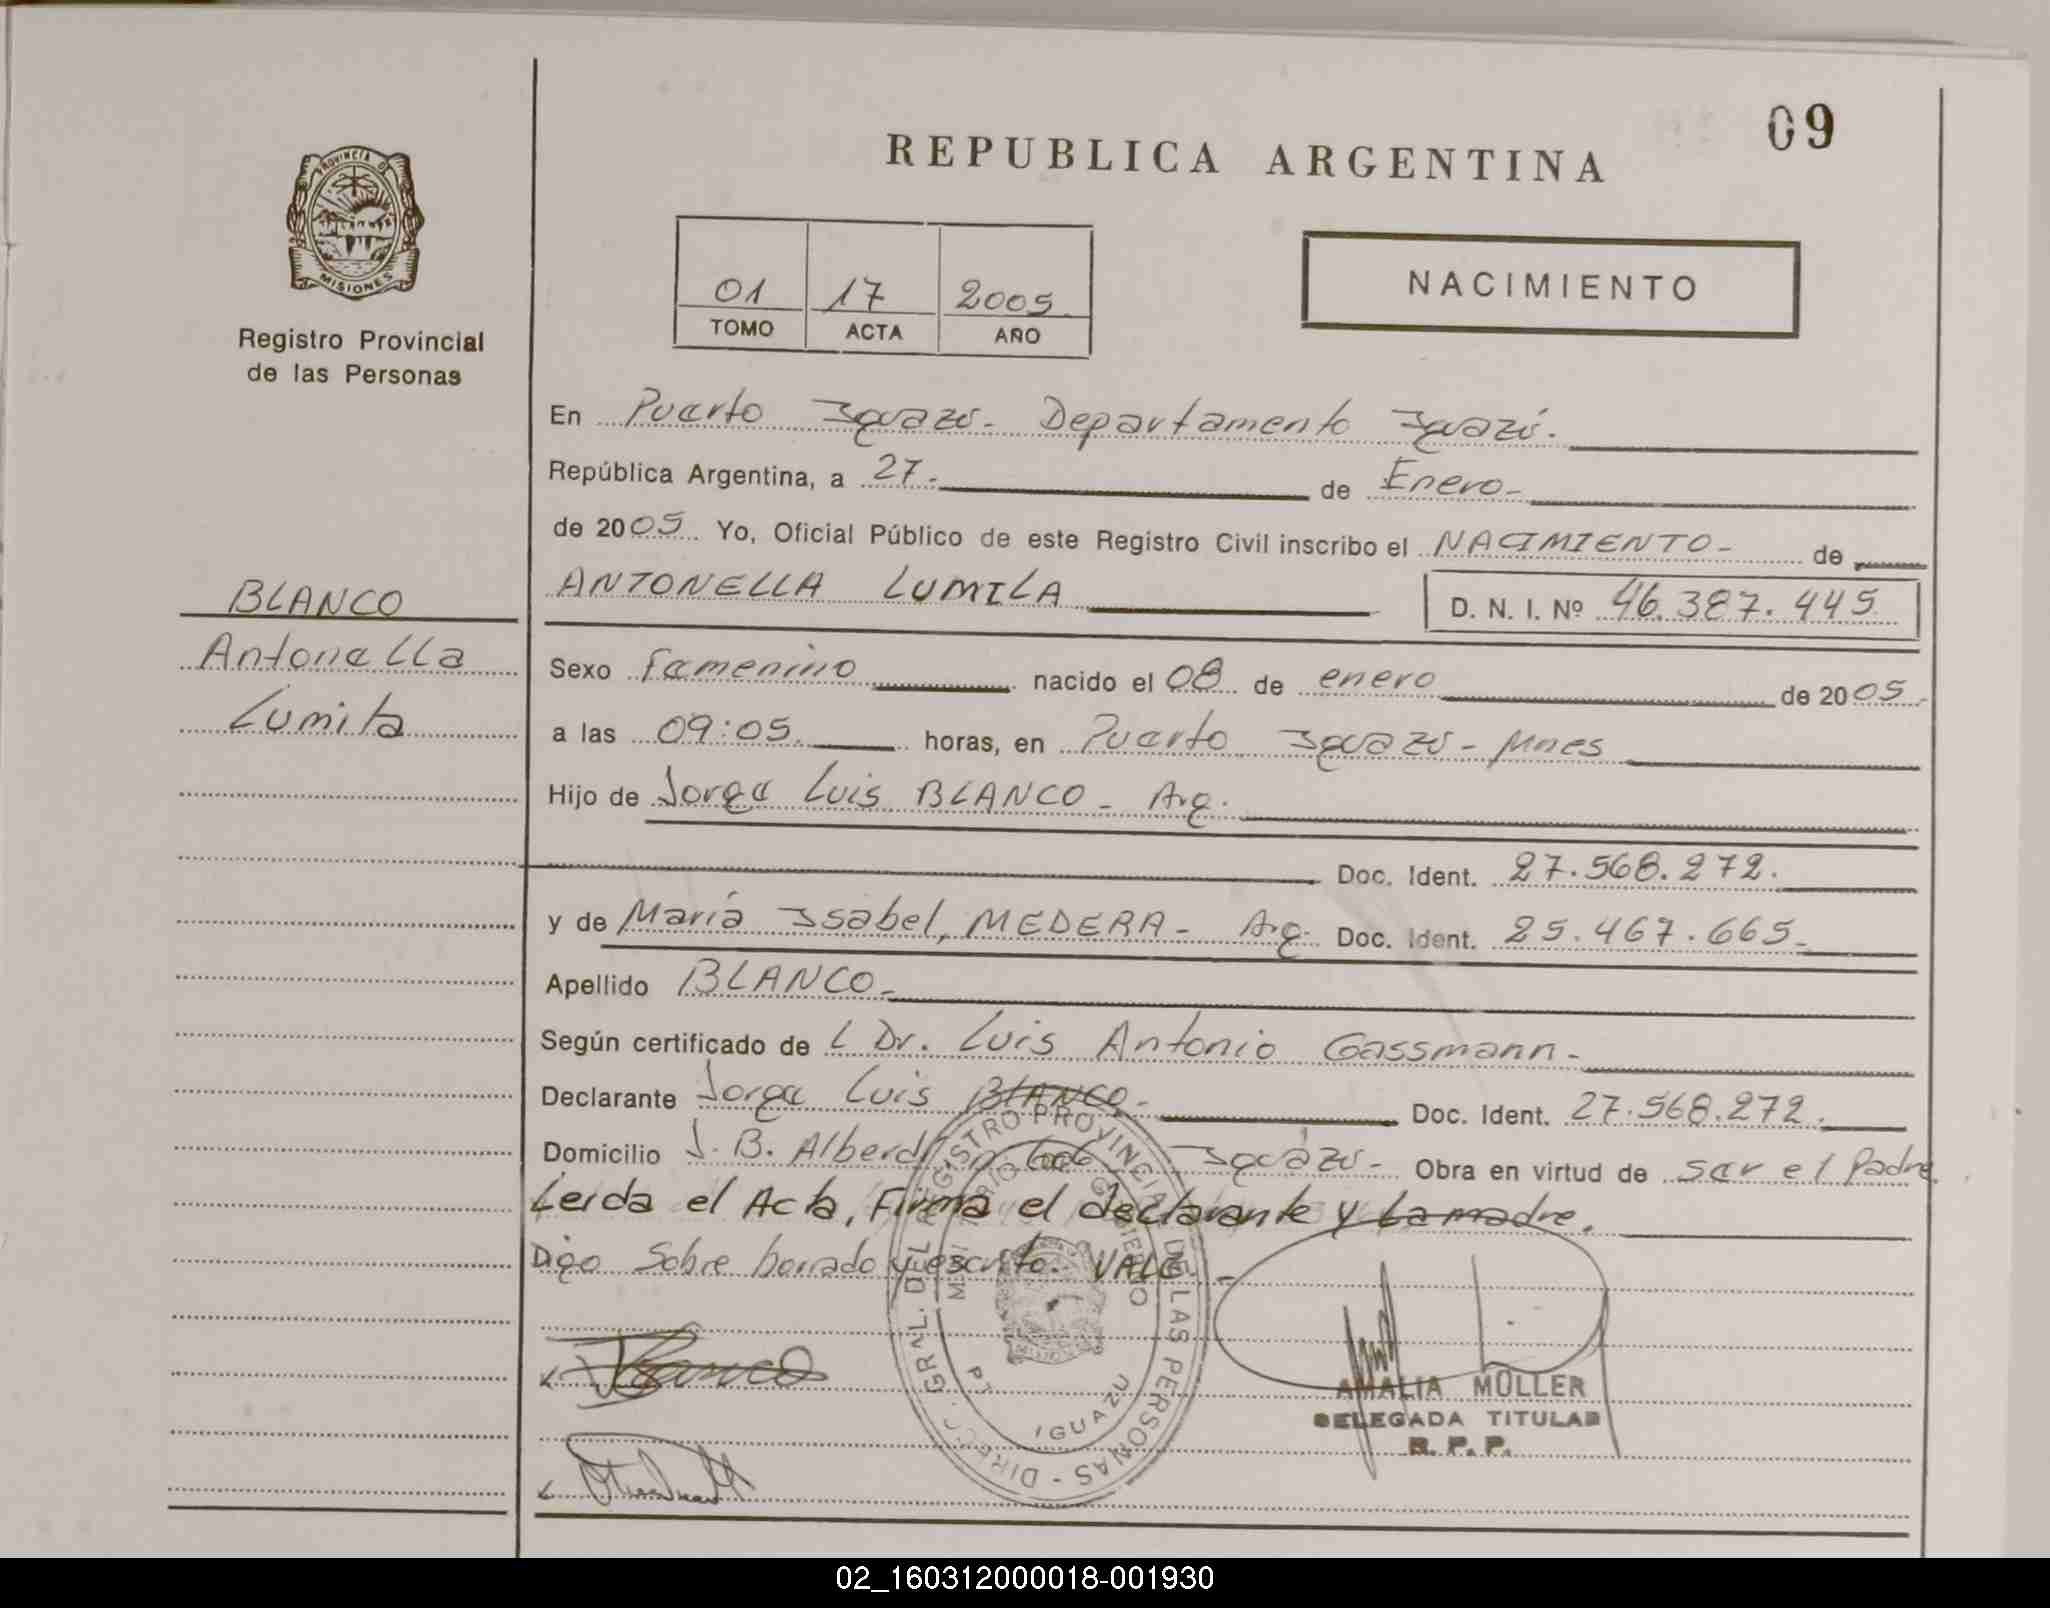 09
REPUBLICA ARGENTINA
PROVINCIA DE
MISIONES
Registro Provincial
de las Personas
01 17 2005
TOMO ACTA AÑO
NACIMIENTO
En Puerto Iguazú - Departamento Iguazú.
República Argentina, a 27 - de Enero -
de 2005 Yo, Oficial Público de este Registro Civil inscribo el NACIMIENTO - de
ANTONELLA LUMILA D. N. I. Nº 46.387.445
BLANCO
Antonella
Lumila
Sexo Femenino nacido el 08 de enero de 2005
a las 09:05 horas, en Puerto Iguazú - Mnes
Hijo de Jorge Luis BLANCO - Arg.
Doc. Ident. 27.568.272.
y de María Isabel, MEDERA - Arg. Doc. Ident. 25.467.665 -
Apellido BLANCO -
Según certificado de L Dr. Luis Antonio Gassmann -
Declarante Jorge Luis BLANCO - Doc. Ident. 27.568.272.
Domicilio J. B. Alberdi Iguazú - Obra en virtud de ser el Padre
Leida el Acta, Firma el declarante y La madre.
Digo Sobre borrado y escrito. VALE -
DIRECC. GRAL. DEL REGISTRO PROVINCIAL DE LAS PERSONAS
MINISTERIO GOBIERNO
MISIONES
PT IGUAZU
Blanco
AMALIA MÜLLER
DELEGADA TITULAR
R. P. P.
02_160312000018-001930